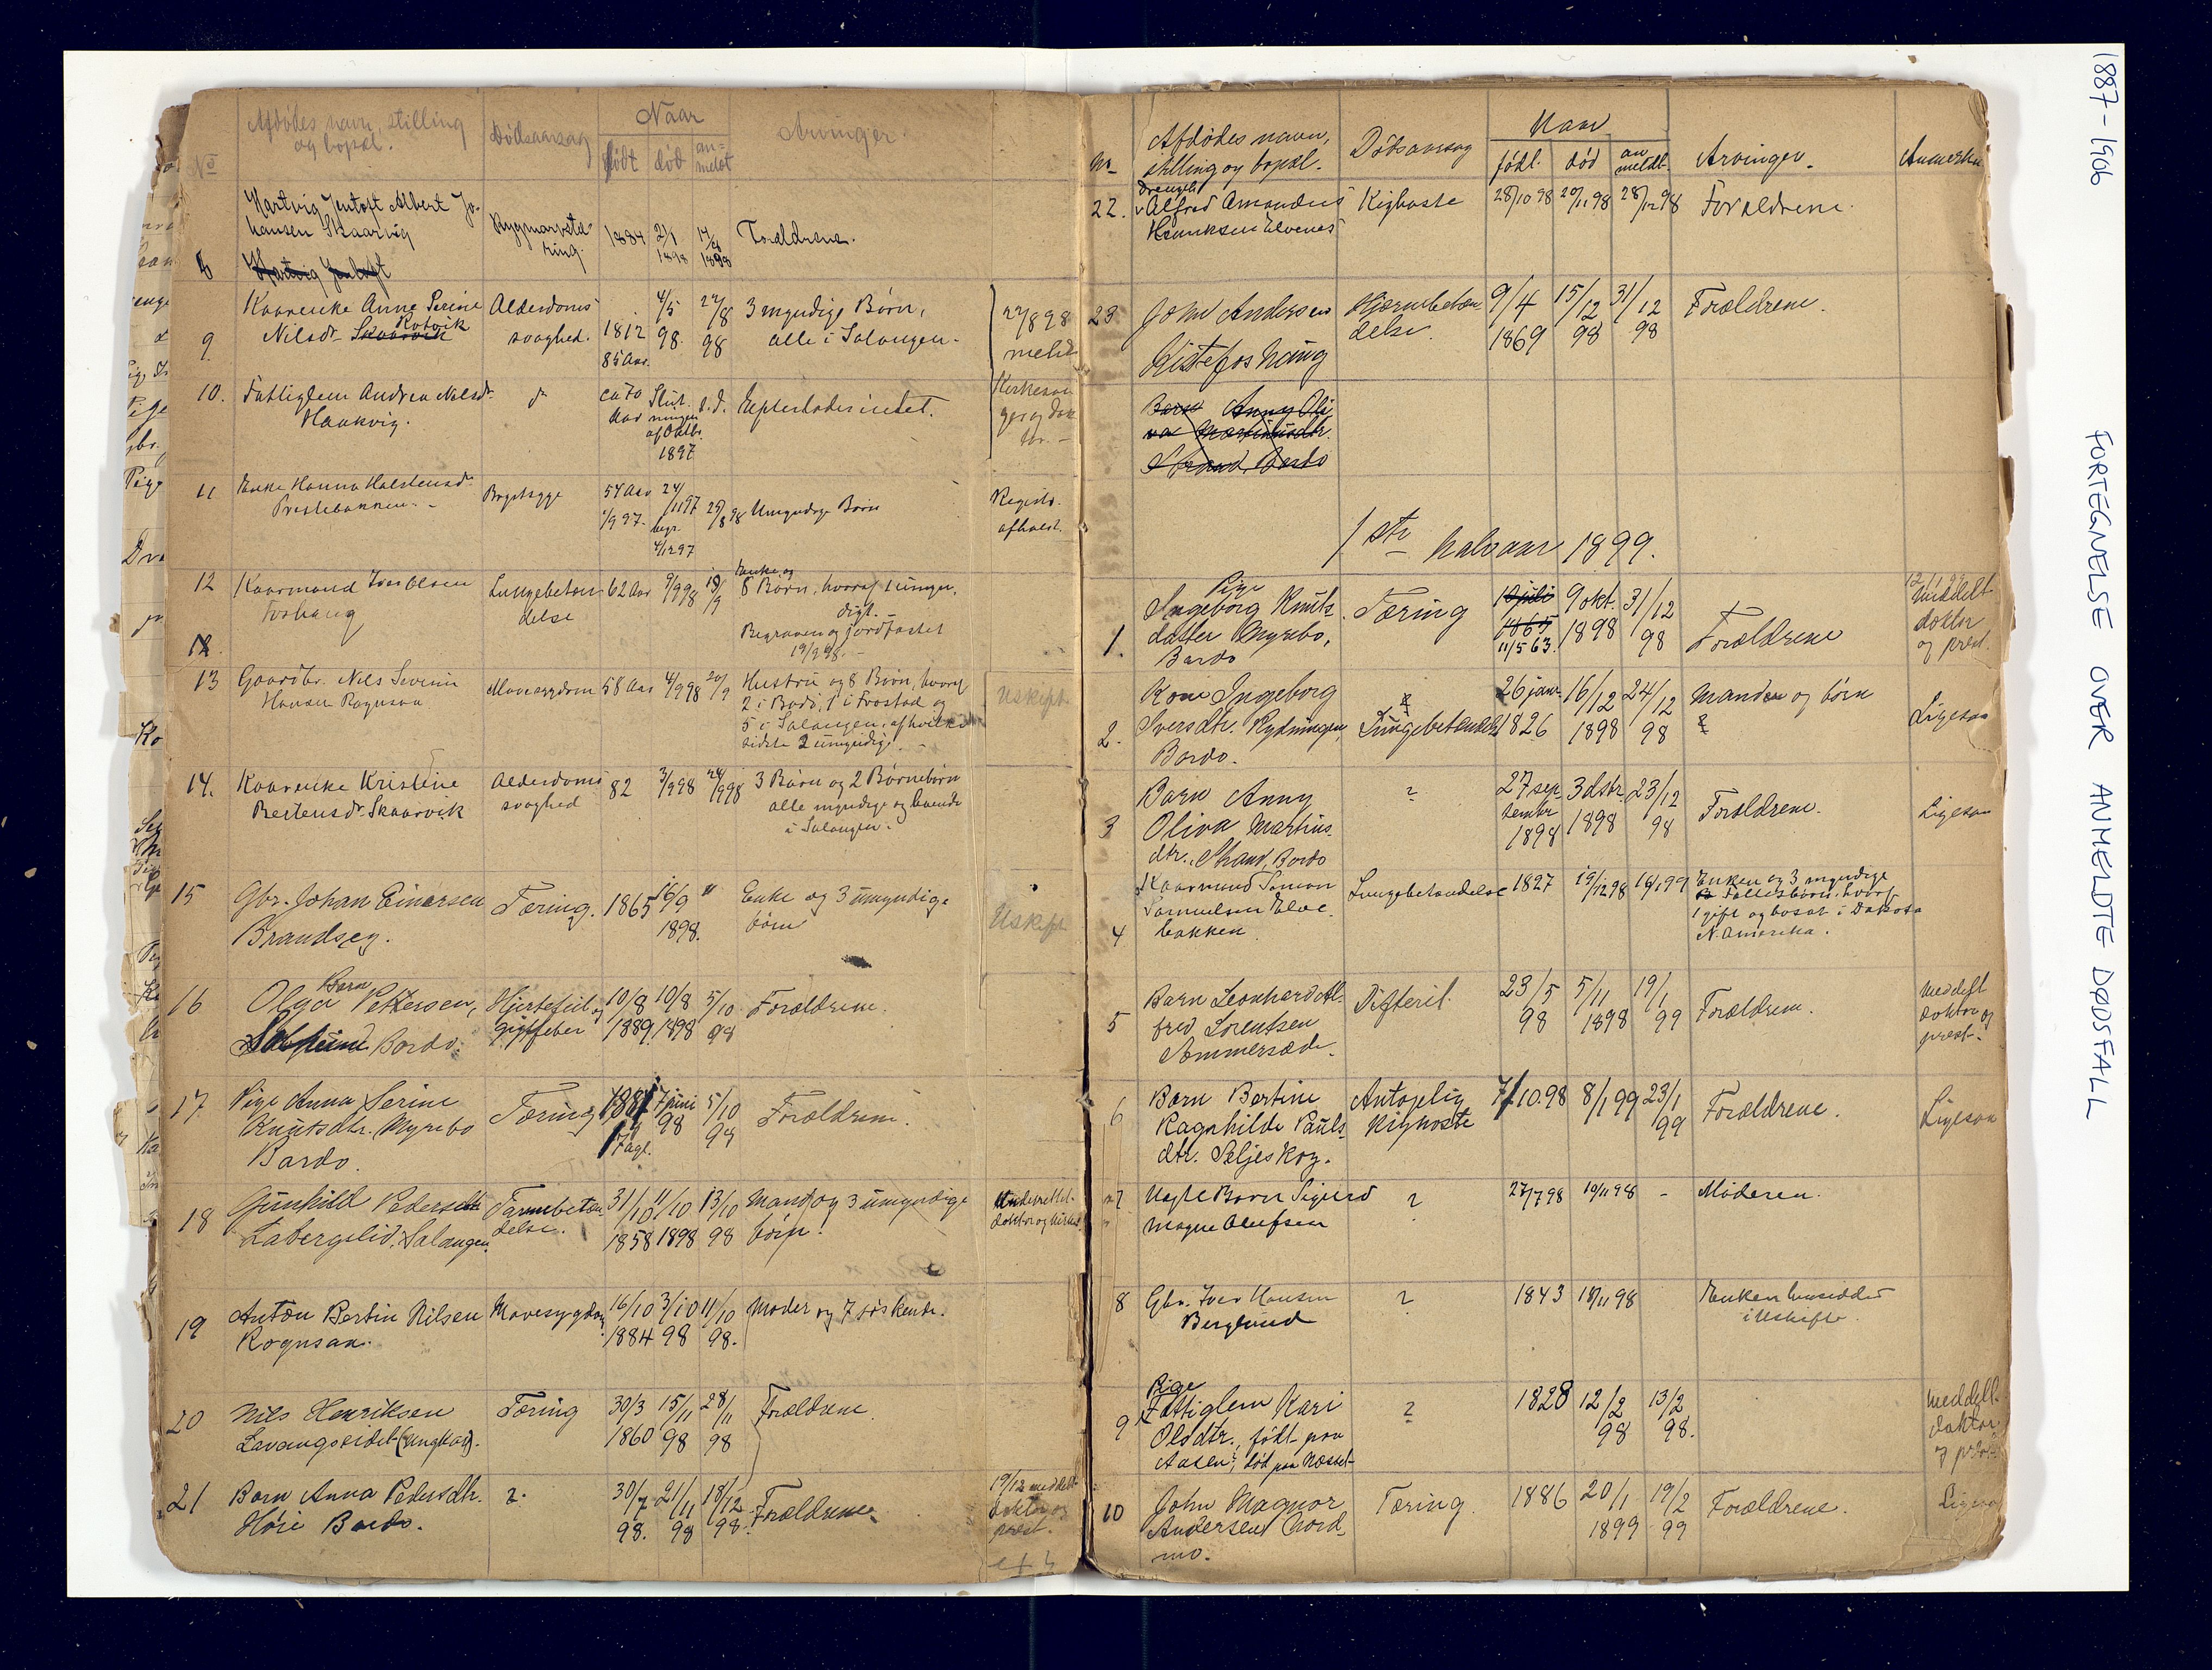 1887-1906 FORTEGNELSE OVER ANMELDTE DØDSFALL
No
Afdødes navn, stilling
og bopæl.
Dødsaarsag
Naar
født død an=
meldt
Arvinger.
8
Hartvig Jentoft Albert Jo-
hansen Skaarvig
Hartvig Jentoft
Rygmarvstæ-
ring
1884
2/1
1898
14/
1898
Forældrene.
9
Kaarenke Anne Serine
Nilsdr Skaarvik
Rotvik
Alderdoms
svaghed.
1812
85 Aar.
4/5
98
22/8
98
3 myndige Børn,
alle i Salangen.
22/8 98
meldt
Kirkesan
ger og dok
tor. -
10.
Fattiglem Andrea Nilsdr
Haukvig.
do
ca 70
Aar
Slut-
ningen
af Oktbr.
1897
s.d.
Efterlader intet.
11
Enke Hanna Halstensdr
Prestebakken. -
Brystsyge
54 Aar
1/9 97.
24/
11 97
begr.
4/12 97
29/
8 98
Umyndige Børn
Registr.
afholdt.
12
Kaarmand Iver Olsen
Forhaug
Lungebetæn
delse
62 Aar
9/9 98
19/
9
Enke og
8 Børn, hvoraf 1 umyn-
digt. -
Begraven og jordfæstet
19/9 98. -
13
Gaardbr. Nils Severin
Hansen Rognsaa
Mavesygdom
58 Aar
4/9 98
20/
9
Hustru og 8 Børn, hvoraf
2 i Bodø, 1 i Trostad og
5 i Salangen, af hvilke
sidste 2 umyndige. -
Uskift
14.
Kaarenke Kristine
Bertensdr Skaarvik
Alderdoms
svaghed
82
3/9 98
24/
9 98
3 Børn og 2 Børnebørn
alle myndige og boende
i Salangen.
15
Gbr. Johan Einarsen
Brandseg.
Tæring.
1865
16/9
1898.
"
Enke og 3 umyndige
børn
Uskift
16
Barn
Olga Pettersen,
Bardo.
Hjertefeil og
gigtfeber
10/8
1889.
10/8
1898
5/10
98
Forældrene.
17
Pige Anna Serine
Knutsdtr. Myrebo
Bardo.
Tæring
1881
17 agl.
7 juni
98
5/10
98
Forældrene.
18
Gunhild Pedersdtr
Labergslid, Salangen.
Tarmbetæn
delse.
31/10
1858
11/10
1898
13/10
98
Mand og 3 umyndige
børn.
Underrettet
doktor og kirkes.
19
Anton Bertin Nilsen
Rognsaa.
Mavesygdom
16/10
1884
3/10
98
11/10
98.
Moder og 7 søskende.
20
Nils Henriksen
Lavangseidet (Ungkar).
Tæring
30/3
1860
15/11
98
28/11
98
Forældrene.
21
Barn Anna Pedersdtr.
Høie Bardo.
?.
30/7
98.
21/11
98
18/12
98.
Forældrene.
19/12 meddelt
doktor og
prest.
Nr
Afdødes navn,
stilling og bopæl.
Dødsaarsag
Naar
født. død an
meldt.
Arvinger.
Anmerkn
22.
Drengeb.
Alfred Amandus
Henriksen Elvenes
Kighoste
28/10 98
20/11 98
28/12 98
Forældrene.
23
John Andersen
Kistefoshaug
Hjernebetæn
delse.
9/4
1869
15/12
98
31/12
98
Forældrene.
Barn Anny Oli
va Martinusdtr.
Strand, Bardo
1ste halvaar 1899.
1.
Pige
Ingeborg Knuts
datter Myrebo,
Bardo
Tæring
1865
11/5 63.
9 okt.
1898
31/12
98
Forældrene
meddelt
doktor
og prest.
2.
Kone Ingeborg
Iversdtr. Rydningen,
Bardo.
?
Lungebetændelse
26 janr
1826
16/12
1898
24/12
98
Manden og børn
?
Ligesaa
3
Barn Anny
Oliva Martinus
dtr. Strand, Bardo
?
27 sep-
tember
1898
3 dsbr.
1898
23/12
98
Forældrene.
Ligesaa
4
Kaarmand Simon
Samuelsen Elve-
bakken
Lungebetændelse
1827
19/12 98
16/1 99
Enken og 3 myndige
Fællesbørn, hvoraf
1 gift og bosat i Dakota
N. Amerika.
5
Barn Leonhard Al-
fred Lorentsen
Sommersæde.
Difterit.
23/5
98
5/11
1898
19/1
99
Forældrene.
Meddelt
doktor og
prest.
6
Barn Bertine
Ragnhilde Pauls-
dtr. Seljeskog.
Antagelig
Kighoste
7/10.98
8/1 99
23/1
99
Forældrene.
Ligesaa
7
Uægte Barn Sigurd
Magne Olufsen
?
27/7 98
19/11 98
-
Moderen.
8
Gbr. Iver Hansen
Berglund
?
1843
18/11 98
Enken hensidder
i Uskifte.
9
Pige
Fattiglem Kari
Olsdtr., født paa
Aasen, død paa Næsset
?
1828
12/2
98
13/2
98.
meddelt
doktor
og prest
10
John Magnor
Andersen Nord-
mo.
Tæring.
1886
20/1
1899
19/2
99
Forældrene.
Ligesaa